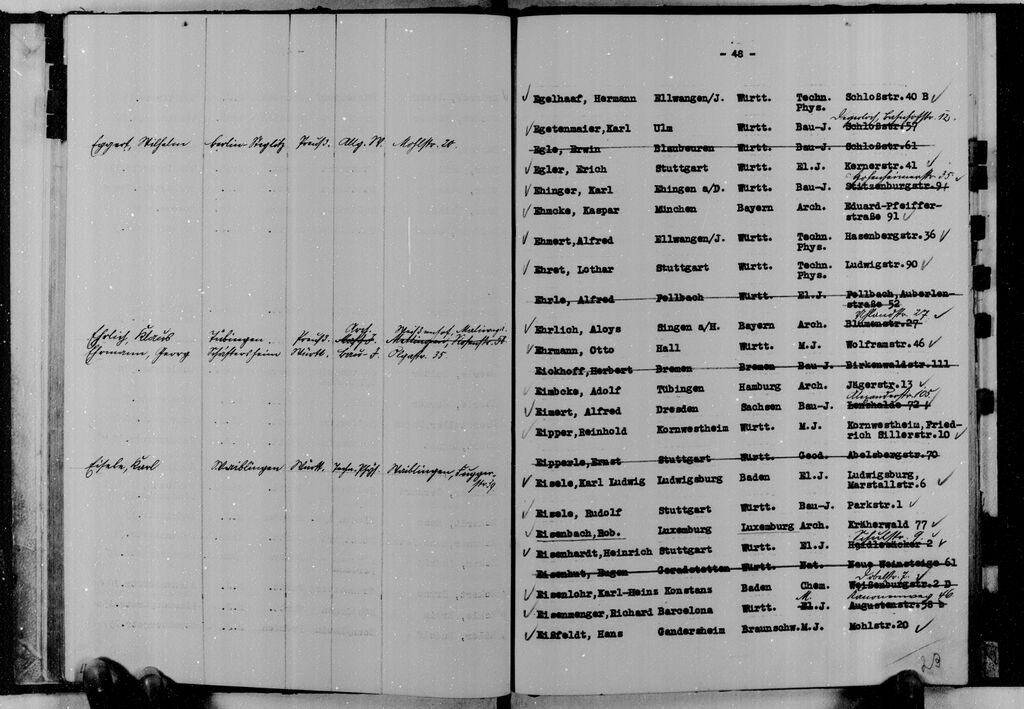 Eggert, Wilhelm Berlin Steglitz Preuß. Allg. W. Mohlstr. 20.
Ehrlich, Klaus Tübingen. Preuß. Arch.
Ehrmann, Georg Schäftersheim Württ. Bau-J. Olgastr. 35.
Eisele, Karl Waiblingen Württ. Techn. Phys. Waiblingen,
- 48 -
Egelhaaf, Hermann Ellwangen/J. Württ. Techn. Schloßstr.40 B
Phys.
Degerloch, Bahnhofstr. 12.
Egetenmaier,Karl Ulm Württ. Bau-J. Schloßstr57
Egle, Erwin Blaubeuren Württ. Bau-J. Schloßstr.61
Egler, Erich Stuttgart Württ. El.J. Kernerstr.41
Hohenheimerstr. 35
Ehinger, Karl Ehingen a/D. Württ. Bau-J. Stitzenburgstr.9
Ehmcke, Kaspar München Bayern Arch. Eduard-Pfeiffer-
straße 91
Ehmert,Alfred Ellwangen/J. Württ. Techn. Hasenbergstr.36
Phys.
Ehret, Lothar Stuttgart Württ. Techn. Ludwigstr.90
Phys.
Ehrle, Alfred Fellbach Württ. El.J. Fellbach,Auberlen-
straße 52
Uhlandstr. 27
Ehrlich, Aloys Singen a/H. Bayern Arch. Blumenstr.27
Ehrmann, Otto Hall Württ. M.J. Wolframstr.46
Eickhoff,Herbert Bremen Bremen Bau-J. Birkenwaldstr.111
Eimbcke, Adolf Tübingen Hamburg Arch. Jägerstr.13
Alexanderstr. 105
Eimert, Alfred Dresden Sachsen Bau-J. Lenzhalde 72
Eipper,Reinhold Kornwestheim Württ. M.J. Kornwestheim,Fried-
rich Sillerstr.10
Eipperle,Ernst Stuttgart Württ. Geod. Abelsbergstr.70
Eisele,Karl Ludwig Ludwigsburg Baden El.J. Ludwigsburg,
Marstallstr.6
Eisele, Rudolf Stuttgart Württ. Bau-J. Parkstr.1
Eisenbach,Rob. Luxemburg Luxemburg Arch. Kräherwald 77
Schulstr. 9.
Eisenhardt,Heinrich Stuttgart Württ. El.J. Heidleswäcker 2
Eisenhut, Eugen Geradstetten Württ. Mat. Neue Weinsteige 61
Döbelstr. 7.
Eisenlohr,Karl-Heinz Konstanz Baden Chem. Weißenburgstr.2 D
M. Kanonenweg 46
Eisenmenger,Richard Barcelona Württ. El.J. Augustenstr.58 b
Eißfeldt, Hans Gandersheim Braunschw.M.J. Mohlstr.20
23